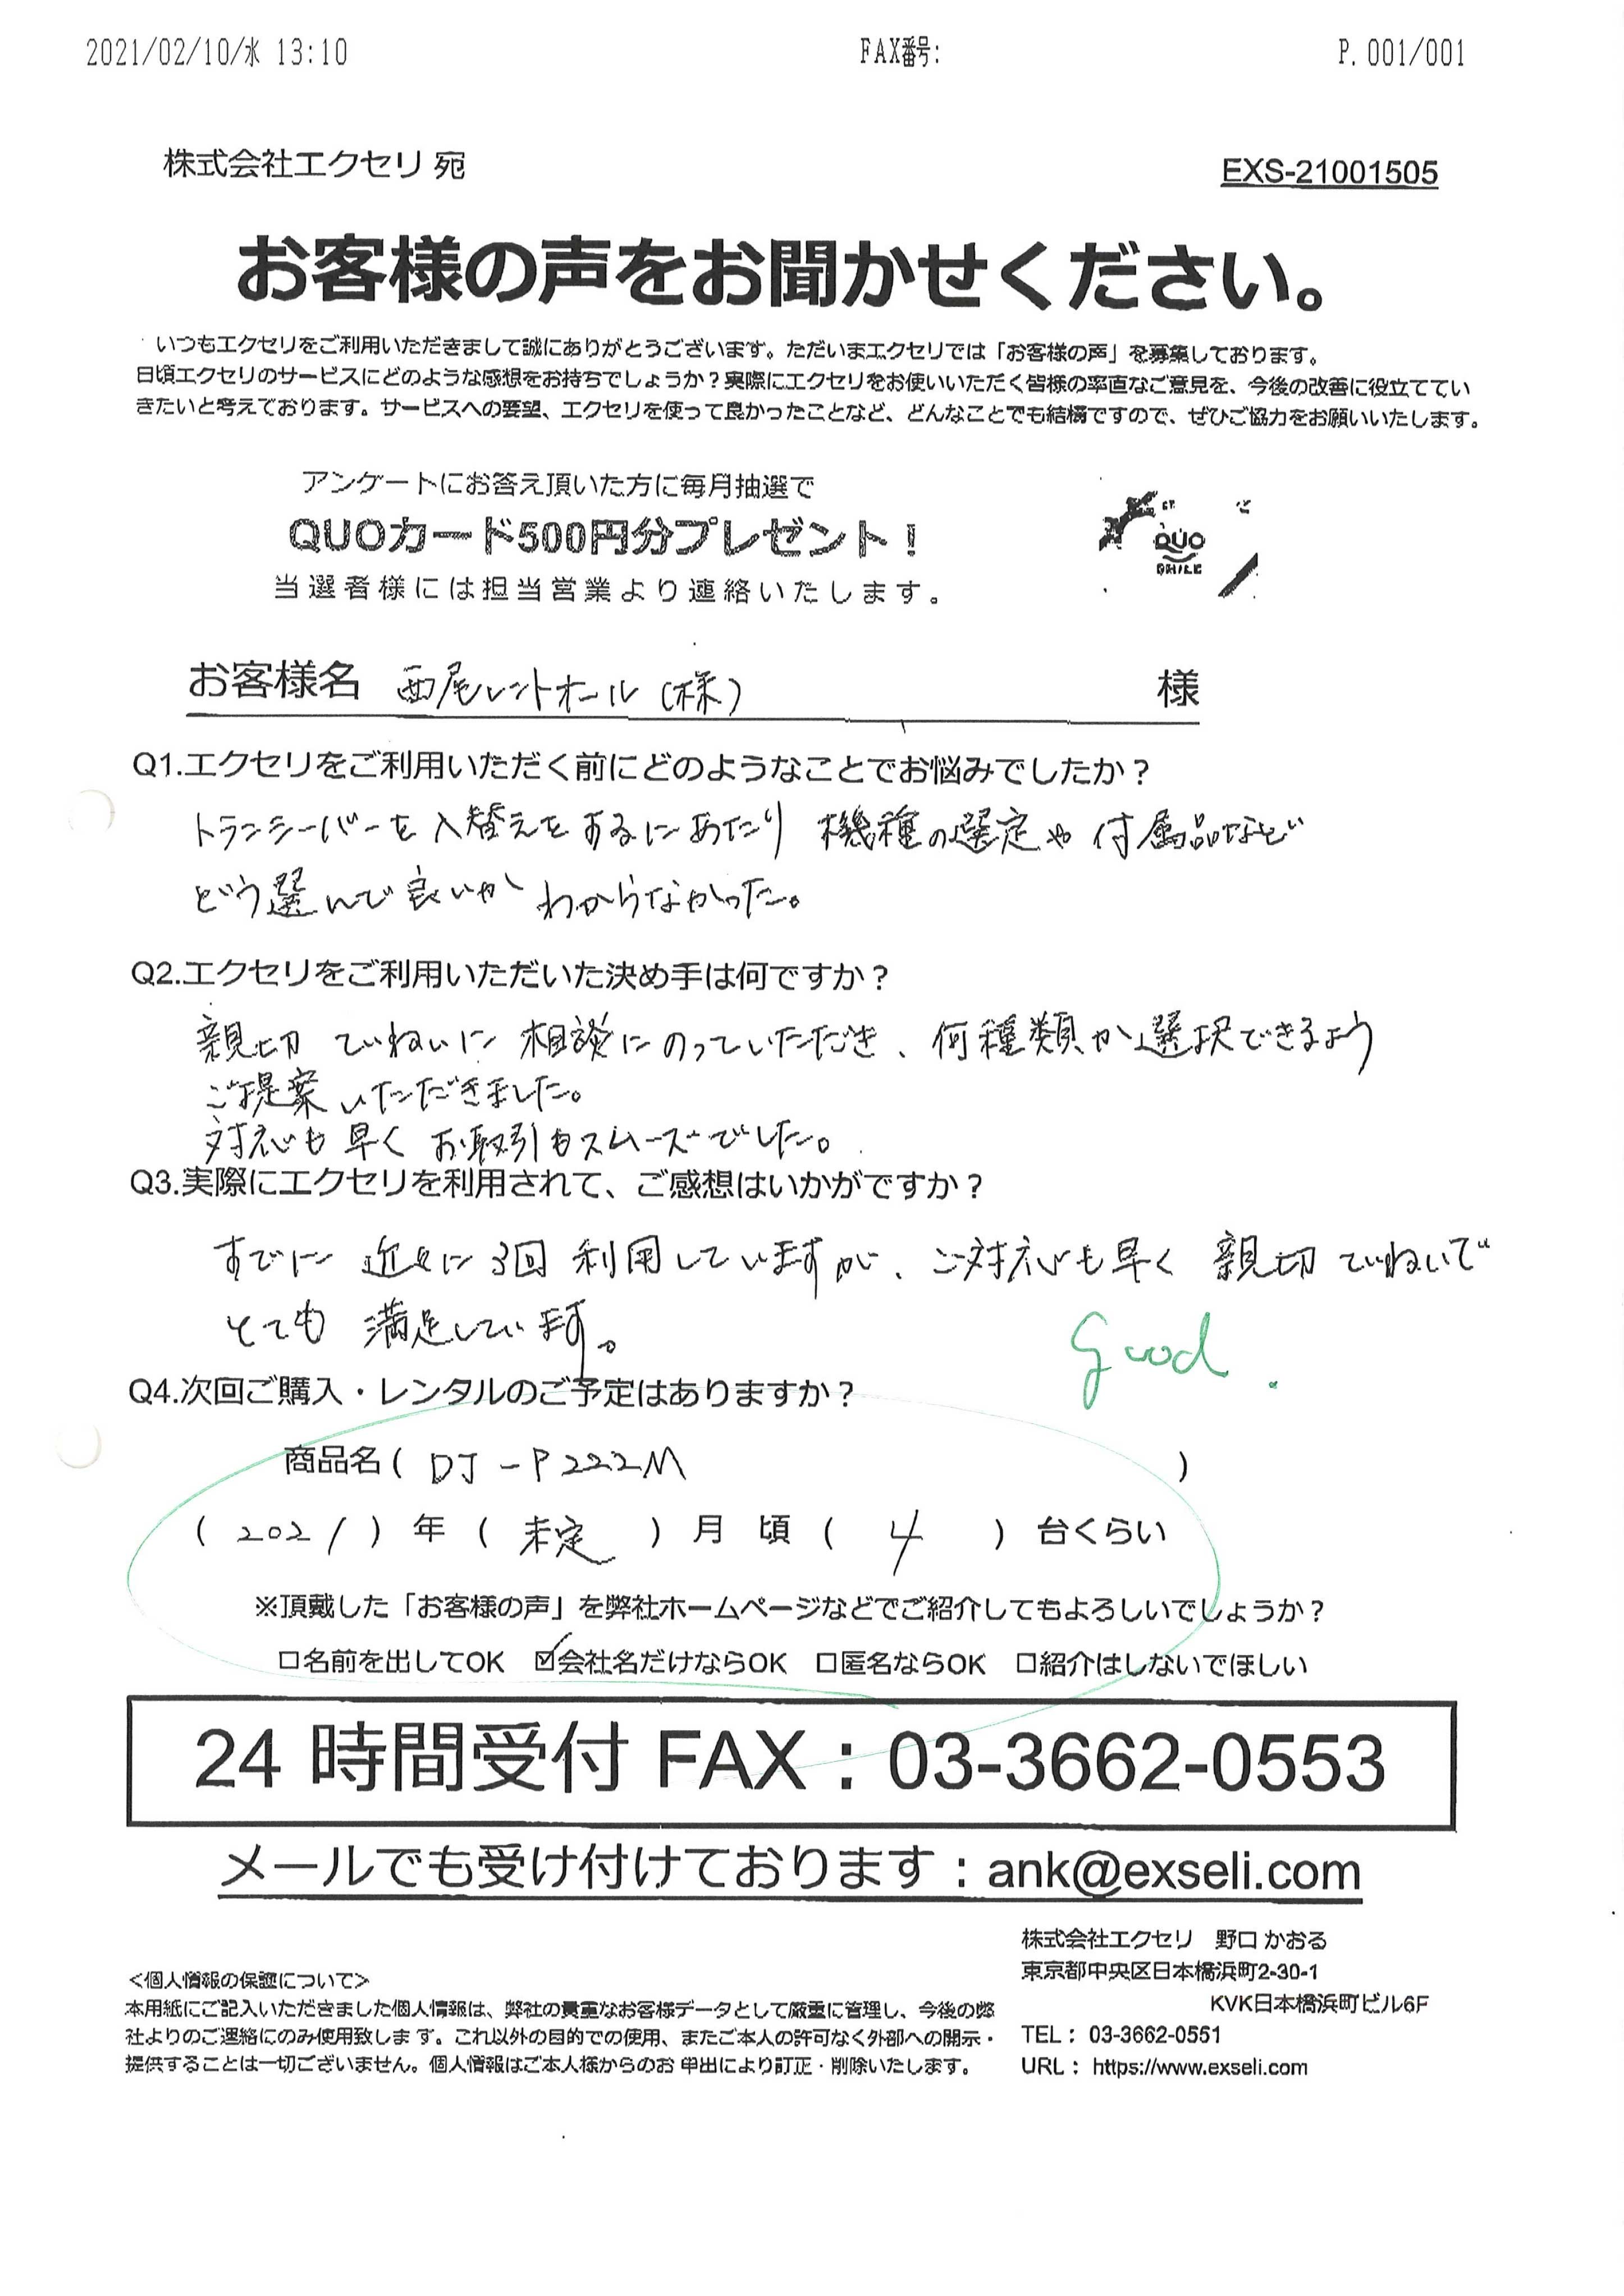 2021/02/10/水 13:10 FAX番号: P. 001/001
株式会社エクセリ 宛 EXS-21001505
お客様の声をお聞かせください。
いつもエクセリをご利用いただきまして誠にありがとうございます。ただいまエクセリでは「お客様の声」を募集しております。
日頃エクセリのサービスにどのような感想をお持ちでしょうか？実際にエクセリをお使いいただく皆様の率直なご意見を、今後の改善に役立ててい
きたいと考えております。サービスへの要望、エクセリを使って良かったことなど、どんなことでも結構ですので、ぜひご協力をお願いいたします。
アンケートにお答え頂いた方に毎月抽選で
QUOカード500円分プレゼント！
当選者様には担当営業より連絡いたします。
QUO
SMILE
お客様名 西尾レントオール(株) 様
Q1.エクセリをご利用いただく前にどのようなことでお悩みでしたか？
トランシーバーを入替えをするにあたり 機種の選定や付属品など
どう選んで良いか わからなかった。
Q2.エクセリをご利用いただいた決め手は何ですか？
親切 ていねいに 相談にのっていただき、何種類か選択できるよう
ご提案いただきました。
対応も早く お取引もスムーズでした。
Q3.実際にエクセリを利用されて、ご感想はいかがですか？
すでに 近々に3回 利用していますが、ご対応も早く 親切ていねいで
とても 満足しています。
Good.
Q4.次回ご購入・レンタルのご予定はありますか？
商品名( DJ-P222M )
( 2021 ) 年 ( 未定 ) 月 頃 ( 4 ) 台くらい
※頂戴した「お客様の声」を弊社ホームページなどでご紹介してもよろしいでしょうか？
□名前を出してOK ☑会社名だけならOK □匿名ならOK □紹介はしないでほしい
24 時間受付 FAX：03-3662-0553
メールでも受け付けております：ank@exseli.com
株式会社エクセリ 野口 かおる
東京都中央区日本橋浜町2-30-1
KVK日本橋浜町ビル6F
TEL： 03-3662-0551
URL： https://www.exseli.com
＜個人情報の保護について＞
本用紙にご記入いただきました個人情報は、弊社の貴重なお客様データとして厳重に管理し、今後の弊
社よりのご連絡にのみ使用致します。これ以外の目的での使用、またご本人の許可なく外部への開示・
提供することは一切ございません。個人情報はご本人様からのお申出により訂正・削除いたします。